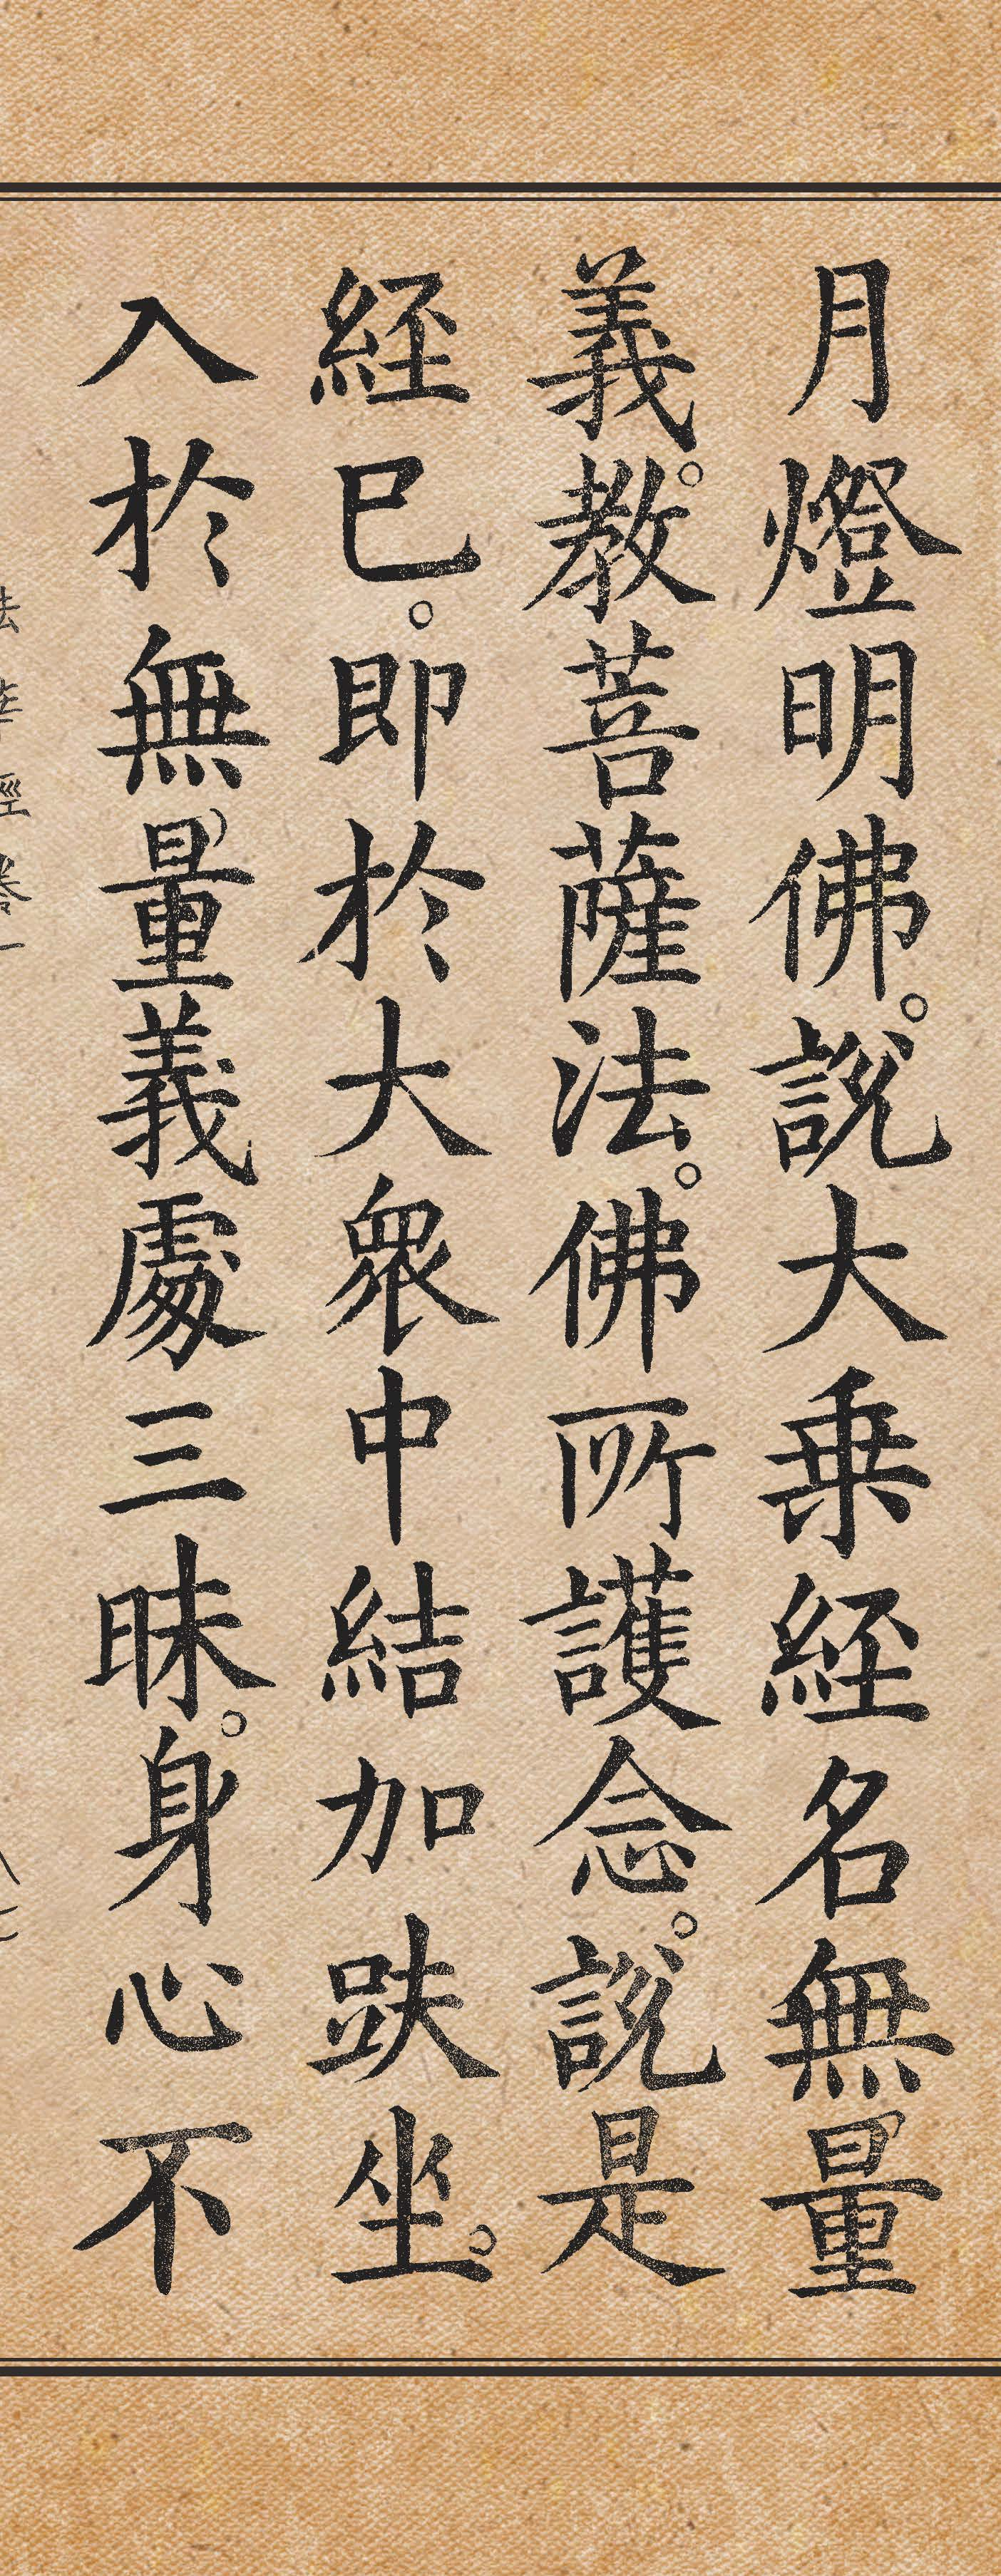 月燈明佛。說大乗経名無量
義。教菩薩法。佛所護念。說是
経已。即於大衆中結加趺坐。
入於無量義處三昧。身心不